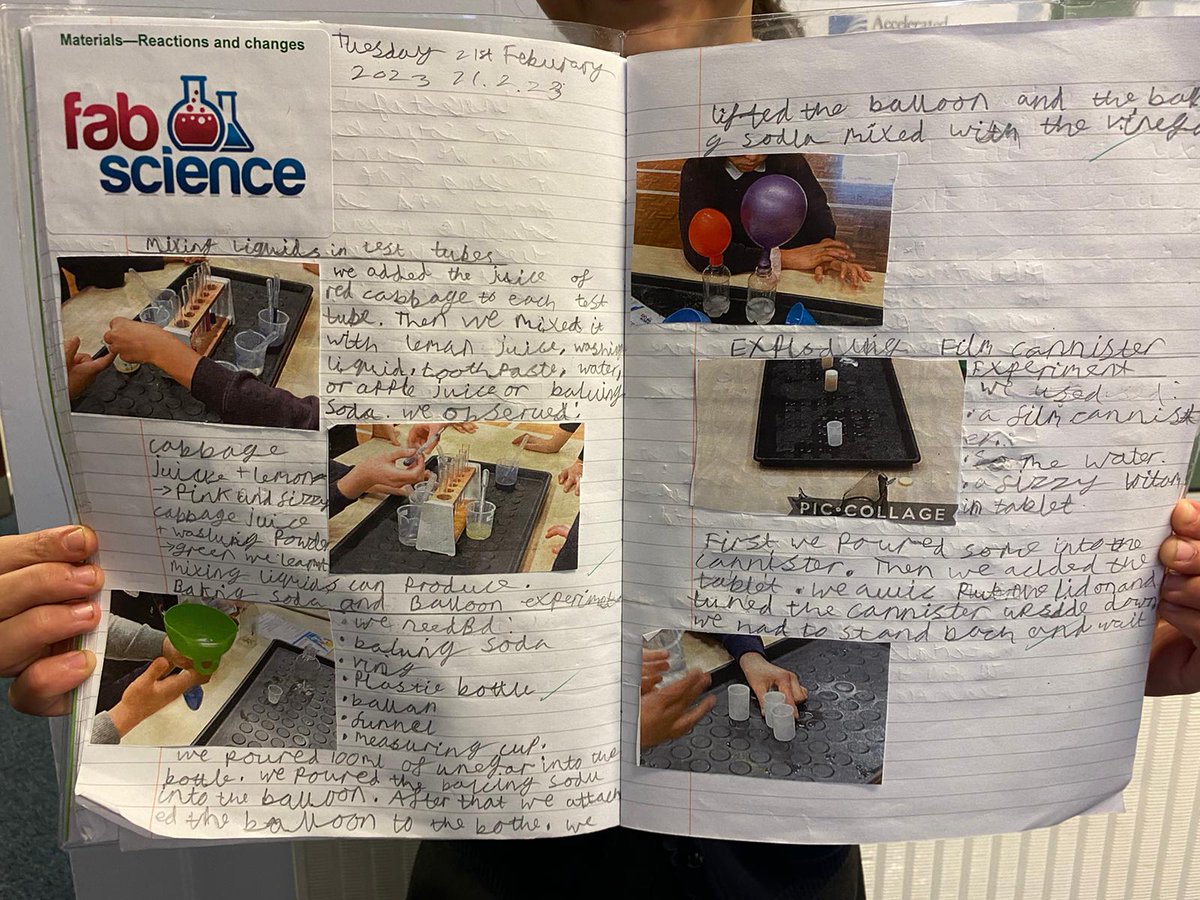 Accelerated
Materials—Reactions and changes
fab
science
Tuesday 21st Feburary
2023 21.2.23
Mixing Liquids in test tubes
we added the juice of
red cabbage to each test
tube. Then we mixed it
with leman juice, washing
liquid, tooth paste, water,
or apple juice or baking
soda. we observed:
cabbage
juice + lemon
→ Pink and fizzy
cabbage juice
+ washing Powder
→ green we learnt
mixing liquids can produce.
Baking soda and Balloon experiment
we needed:
• baking soda
• Plastic bottle
• ballan
• funnel
• measuring cup.
we poured 100ml of vinegar into the
bottle. we poured the baking soda
into the balloon. After that we attach
ed the balloon to the bottle. we
lifted the balloon and the bakin
g soda mixed with the vinega
Exploding Film cannister
Experiment
we used :
• a film cannist
er.
• some water.
• a fizzy vitam
in tablet.
PIC•COLLAGE
First we poured some into the
cannister. Then we added the
tablet. we put the lid on and
tuned the cannister upside down
we had to stand back and wait